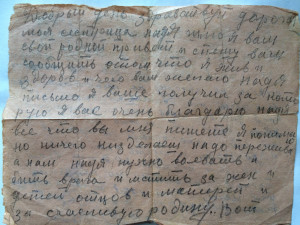 Добрый день здравствуй дорогая
моя сестрица Надя шлю я вам
свой родной привет и спешу вам
сообщить о том что я жив и
здоров чего вам желаю Надя
письмо я ваше получил за кото
рую я вас очень благодарю Надя
все что вы мне пишете я понимаю
но ничего не сделаеш надо пережива
а нам Надя нужно воевать и
бить врага и мстить за жен и
детей отцов и матерей и
за счасливую родину. Вот